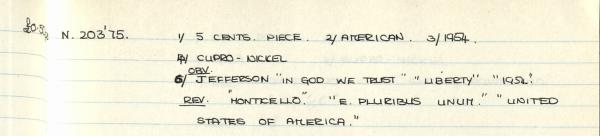 N. 203'75. 1/ 5 CENTS. PIECE. 2/ AMERICAN. 3/ 1954.
4/ CUPRO-NICKEL
OBV.
6/ JEFFERSON "IN GOD WE TRUST" "LIBERTY" "1954".
REV. "MONTICELLO". "E. PLURIBUS UNUM." "UNITED
STATES OF AMERICA."